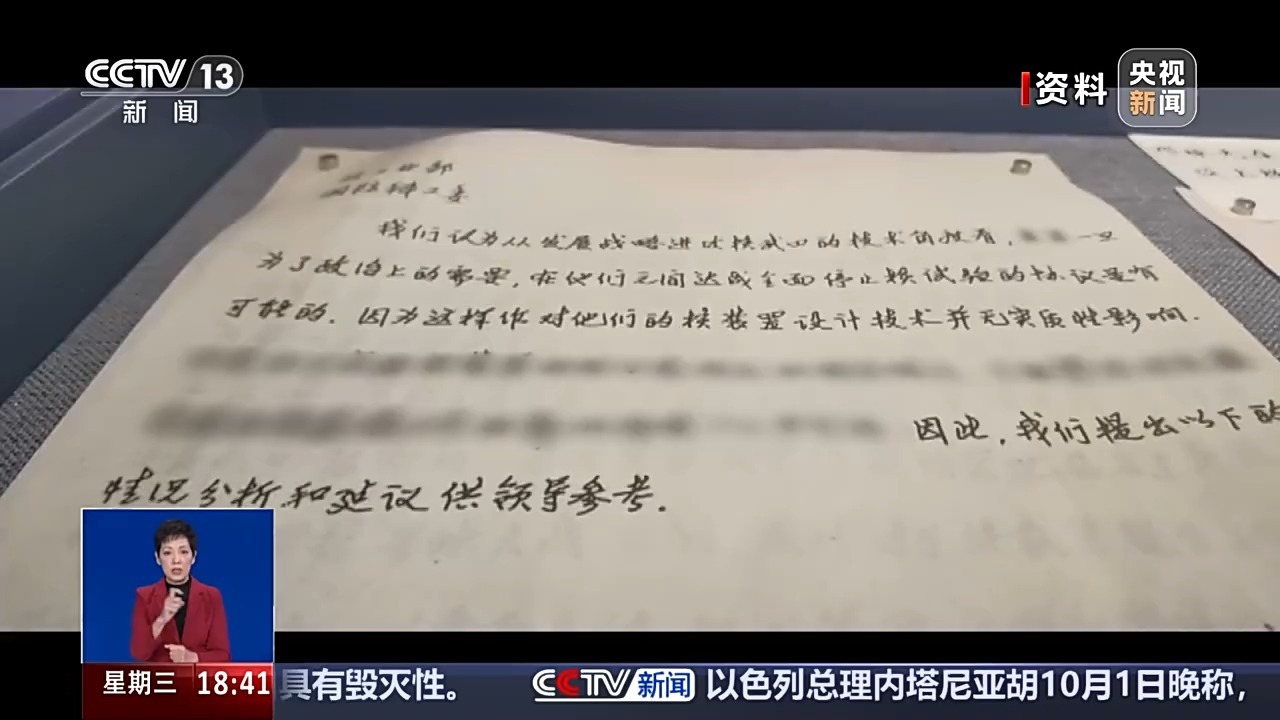 CCTV 13
新闻
资料
央视
新闻
业部
国防科工委
我们认为从发展战略进攻核武的技术角度看,一旦
为了政治上的需要,在他们之间达成全面停止核试验的协议是有
可能的.因为这样作对他们的核装置设计技术并无实质性影响.
因此,我们提出以下的
情况分析和建议供领导参考.
星期三 18:41 具有毁灭性。 CCTV新闻 以色列总理内塔尼亚胡10月1日晚称,